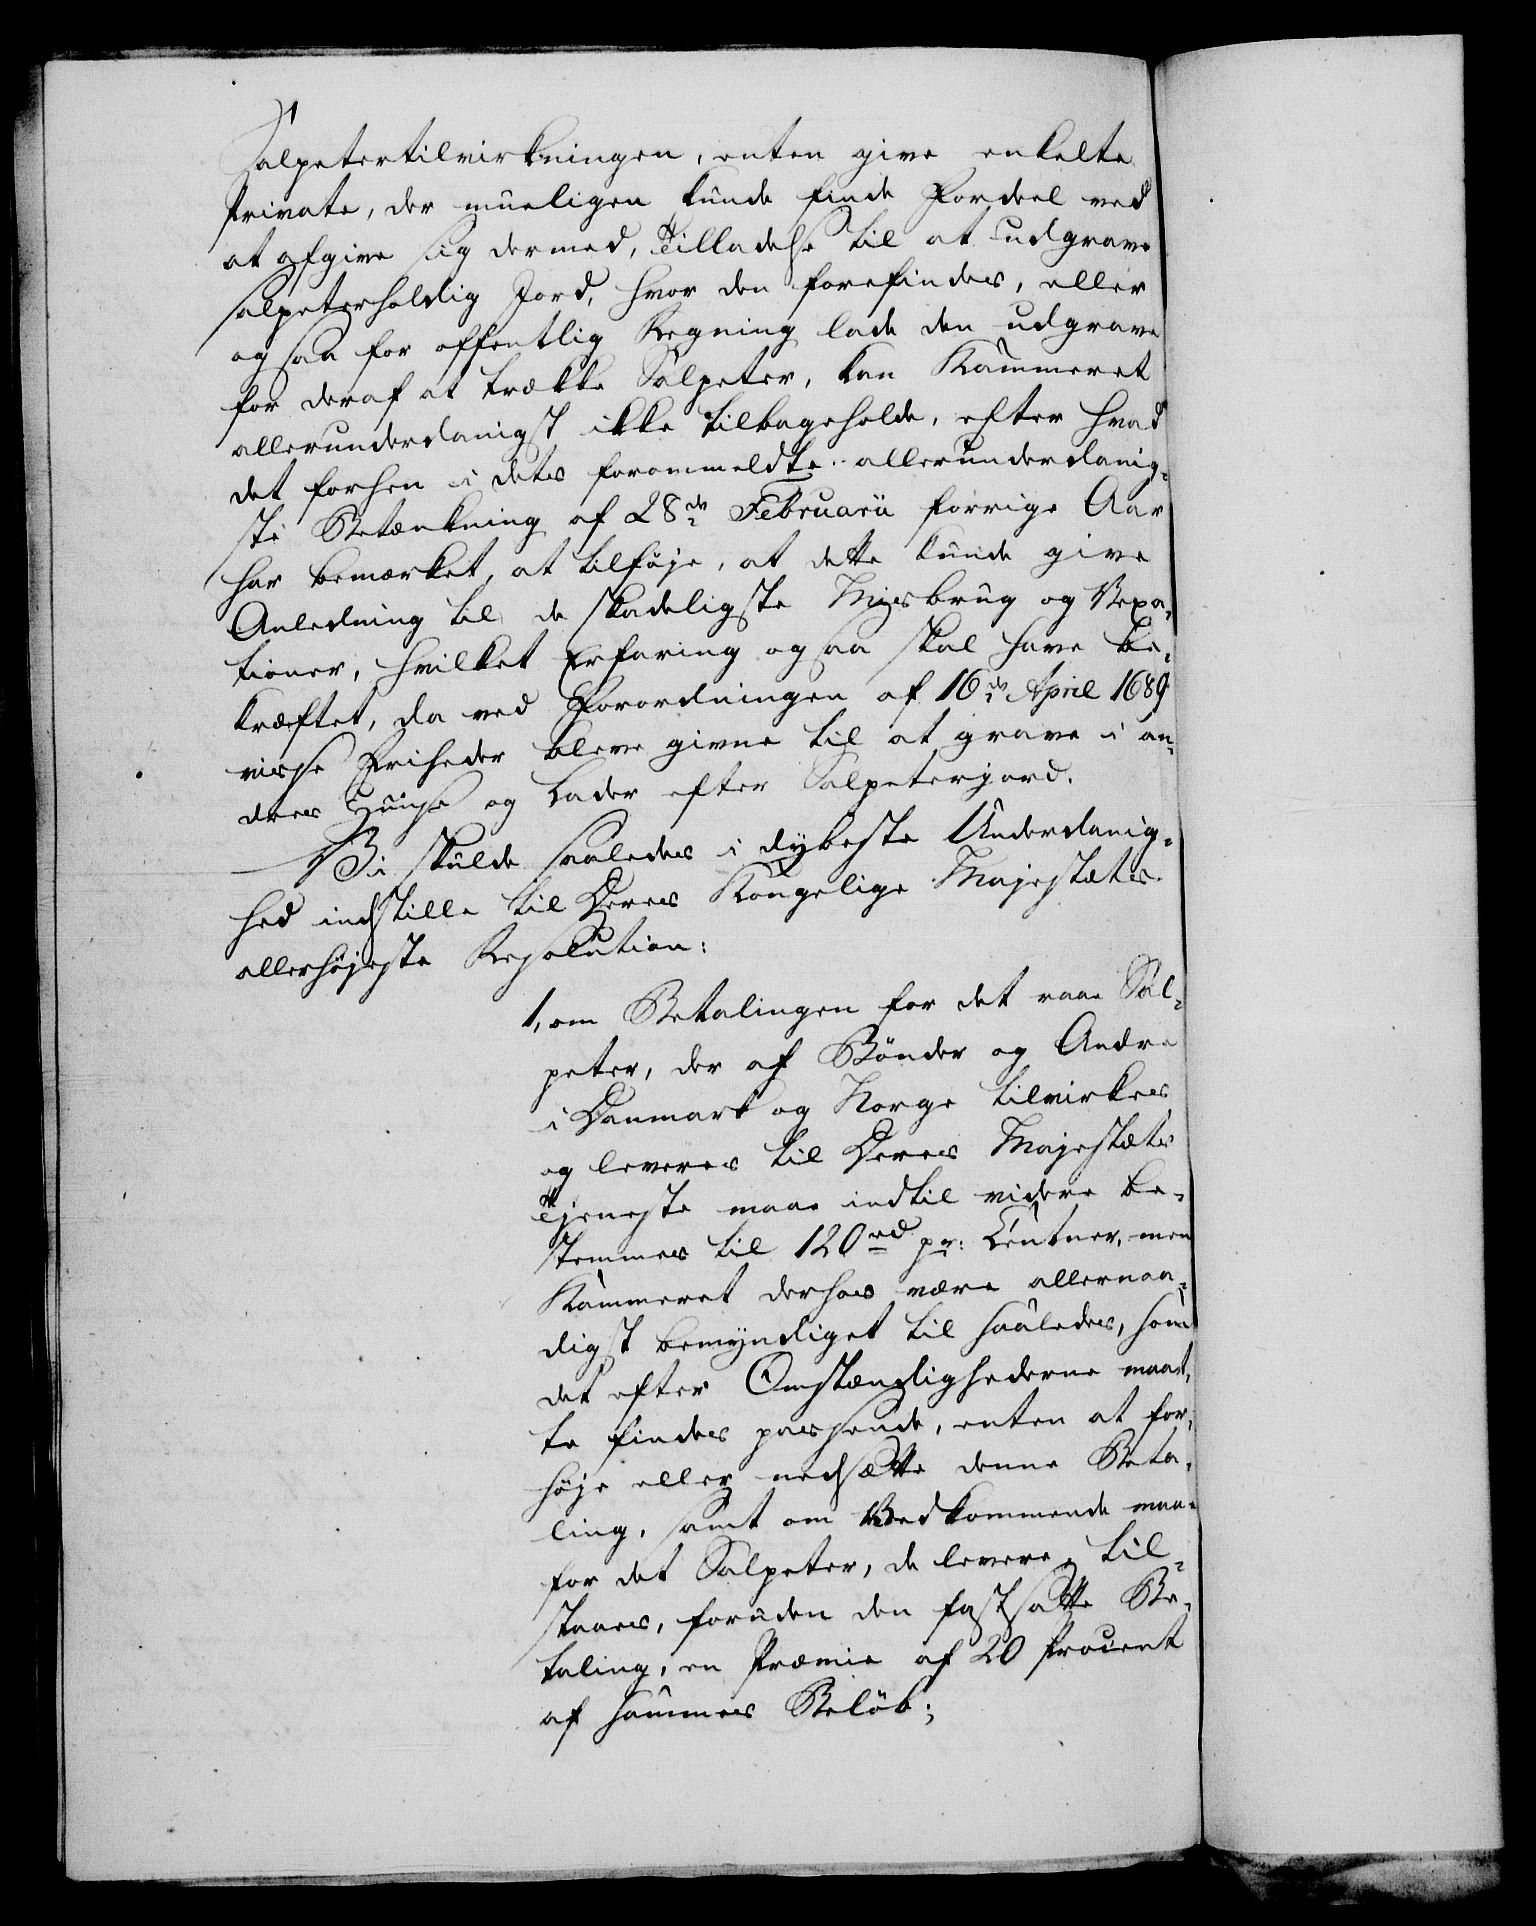 Salpetertilvirkningen, enten give enkelte
Private, der mueligen kunde finde Fordeel ved
at afgive sig dermed, Tilladelse til at udgrave
salpeterholdig Jord, hvor den forefindes, eller
og saa for offentlig Regning lade den udgrave
for deraf at trække Salpeter, kan Kammeret
allerunderdanigst ikke tilbageholde, efter hvad
det forhen i dets forommeldte allerunderdanig-
ste Betænkning af 28de Februarii forrige Aar
har bemærket, at tilføje, at dette kunde give
Anledning til de skadeligste Misbrug og Vexa-
tioner, hvilket Erfaring ogsaa skal have be-
kræftet, da ved Forordningen af 16de April 1689
visse Friheder bleve givne til at grave i an-
dres Huuse og Lader efter Salpeterjord.
Vi skulde saaledes i dybeste Underdanig-
hed indstille til Deres Kongelige Majestæts
allerhøjeste Resolution:
1, om Betalingen for det raae Sal-
peter, der af Bønder og Andre
i Danmark og Norge tilvirkes
og leveres til Deres Majestæts
Tjeneste maae indtil videre be-
stemmes til 120 rd pr: Centner, men
Kammeret derhos være allernaa-
digst bemyndiget til saaledes, som
det efter Omstændighederne maat-
te findes passende, enten at for-
høje eller nedsætte denne Beta-
ling, samt om Vedkommende maae
for det Salpeter, de levere, til-
staaes, foruden den fastsatte Be-
taling, en Præmie af 20 Procent
af sammes Beløb;